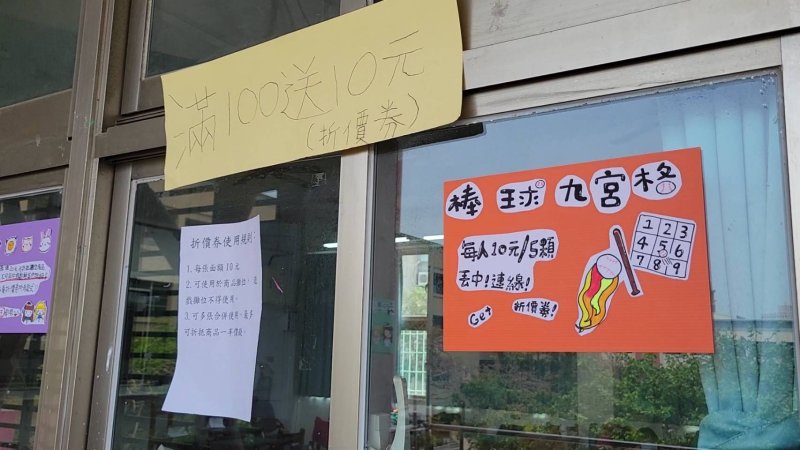 滿100送10元
(折價券)
折價券使用規則：
1. 每張面額10元
2. 可使用於商品攤位，遊
戲攤位不得使用。
3. 可多張合併使用，最多
可折抵商品一半價錢。
棒球九宮格
每人10元/5顆
丟中！連線！
Get 折價券！
1 2 3
4 5 6
7 8 9